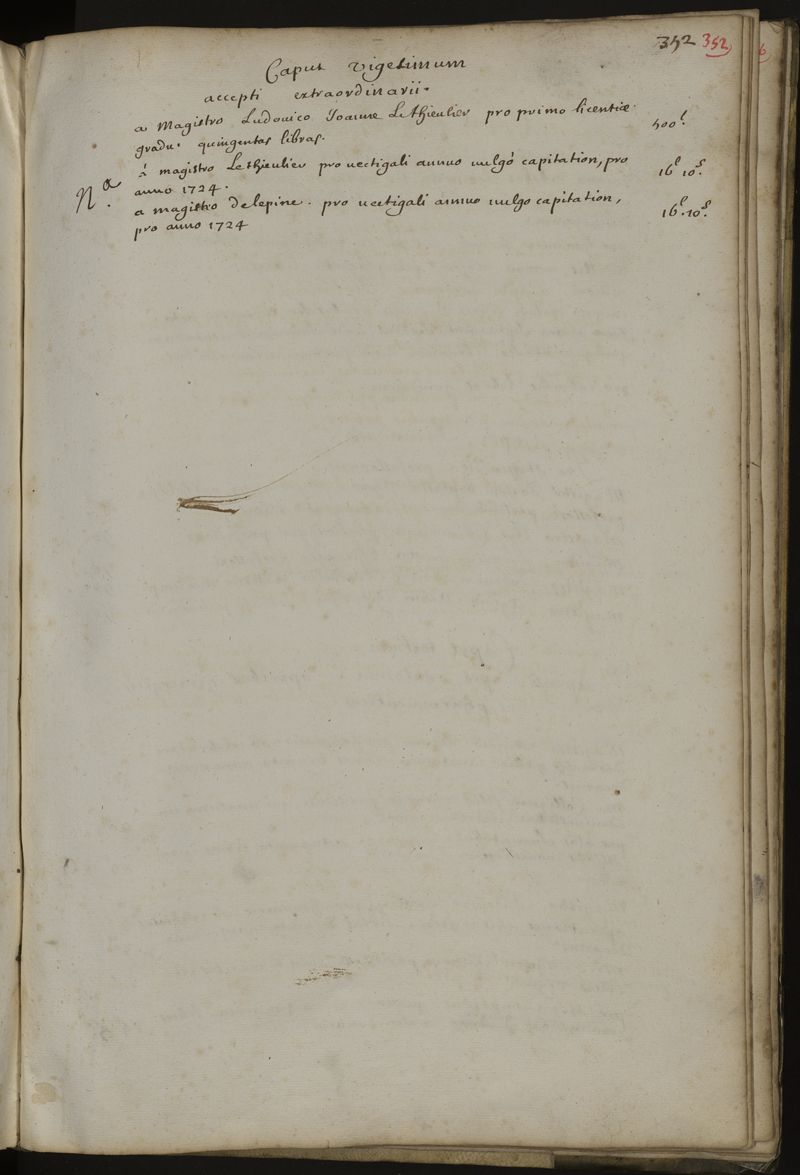 352 352
Caput vigesimum
accepti extraordinarii.
a Magistro Ludovico Joanne LeThieulier pro primo licentiæ
gradu. quingentas libras. 500 l.
Na.
à magistro LeThieulier pro vectigali annuo vulgò capitation, pro
anno 1724. 16 l 10 s.
a magistro delepine. pro vectigali annuo vulgo capitation,
pro anno 1724 16 l. 10 s.